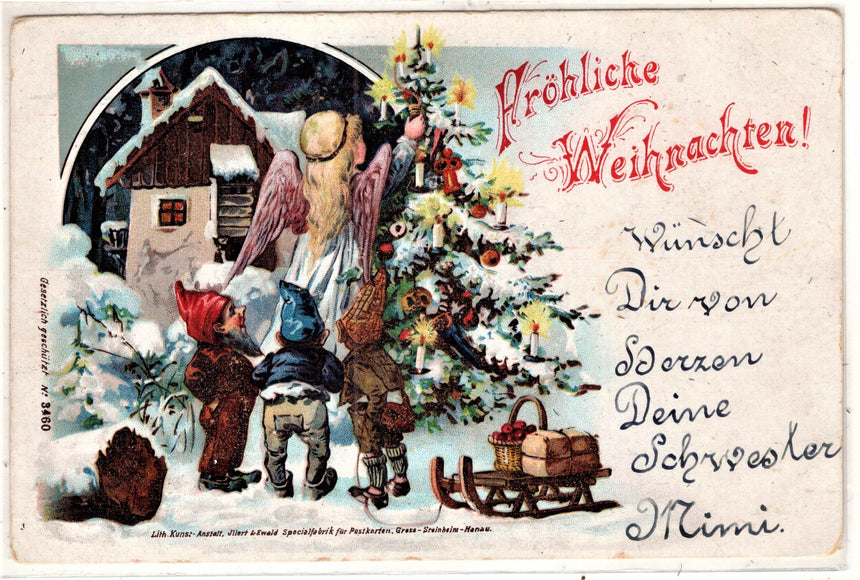 Fröhliche
Weihnachten!
Wünscht
Dir von
Herzen
Deine
Schwester
Mimi.
Gesetzlich geschützt Nº 3460
Lith. Kunst-Anstalt, Jllert & Ewald Specialfabrik für Postkarten, Gross-Steinheim-Hanau.